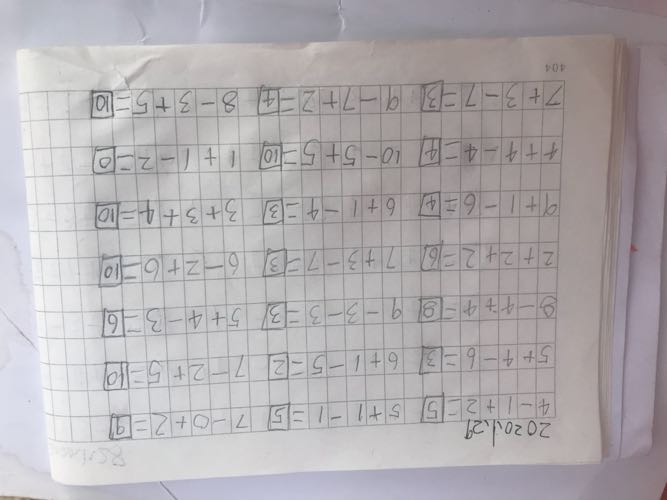 2020.1.29
4-1+2=5 5+1-1=5 7-0+2=9
5+4-6=3 6+1-5=2 7-2+5=10
8-4+4=8 9-3-3=3 5+4-3=6
2+2+2=6 7+3-7=3 6-2+6=10
9+1-6=4 6+1-4=3 3+3+4=10
4+4-4=4 10-5+5=10 1+1-2=0
7+3-7=3 9-7+2=4 8-3+5=10
404